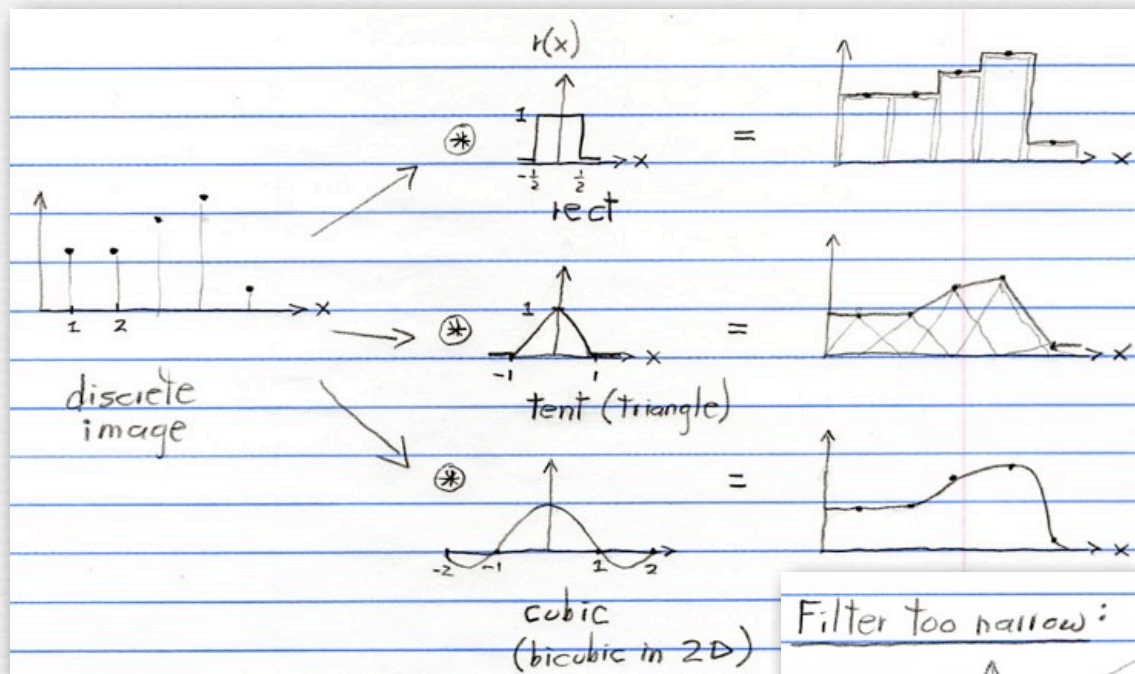 r(x)
1
⊛
=
x
-½
½
x
rect
1
2
x
discrete
image
1
⊛
=
x
-1
1
x
tent (triangle)
⊛
=
-2
-1
1
2
x
cubic
(bicubic in 2D)
Filter too narrow: